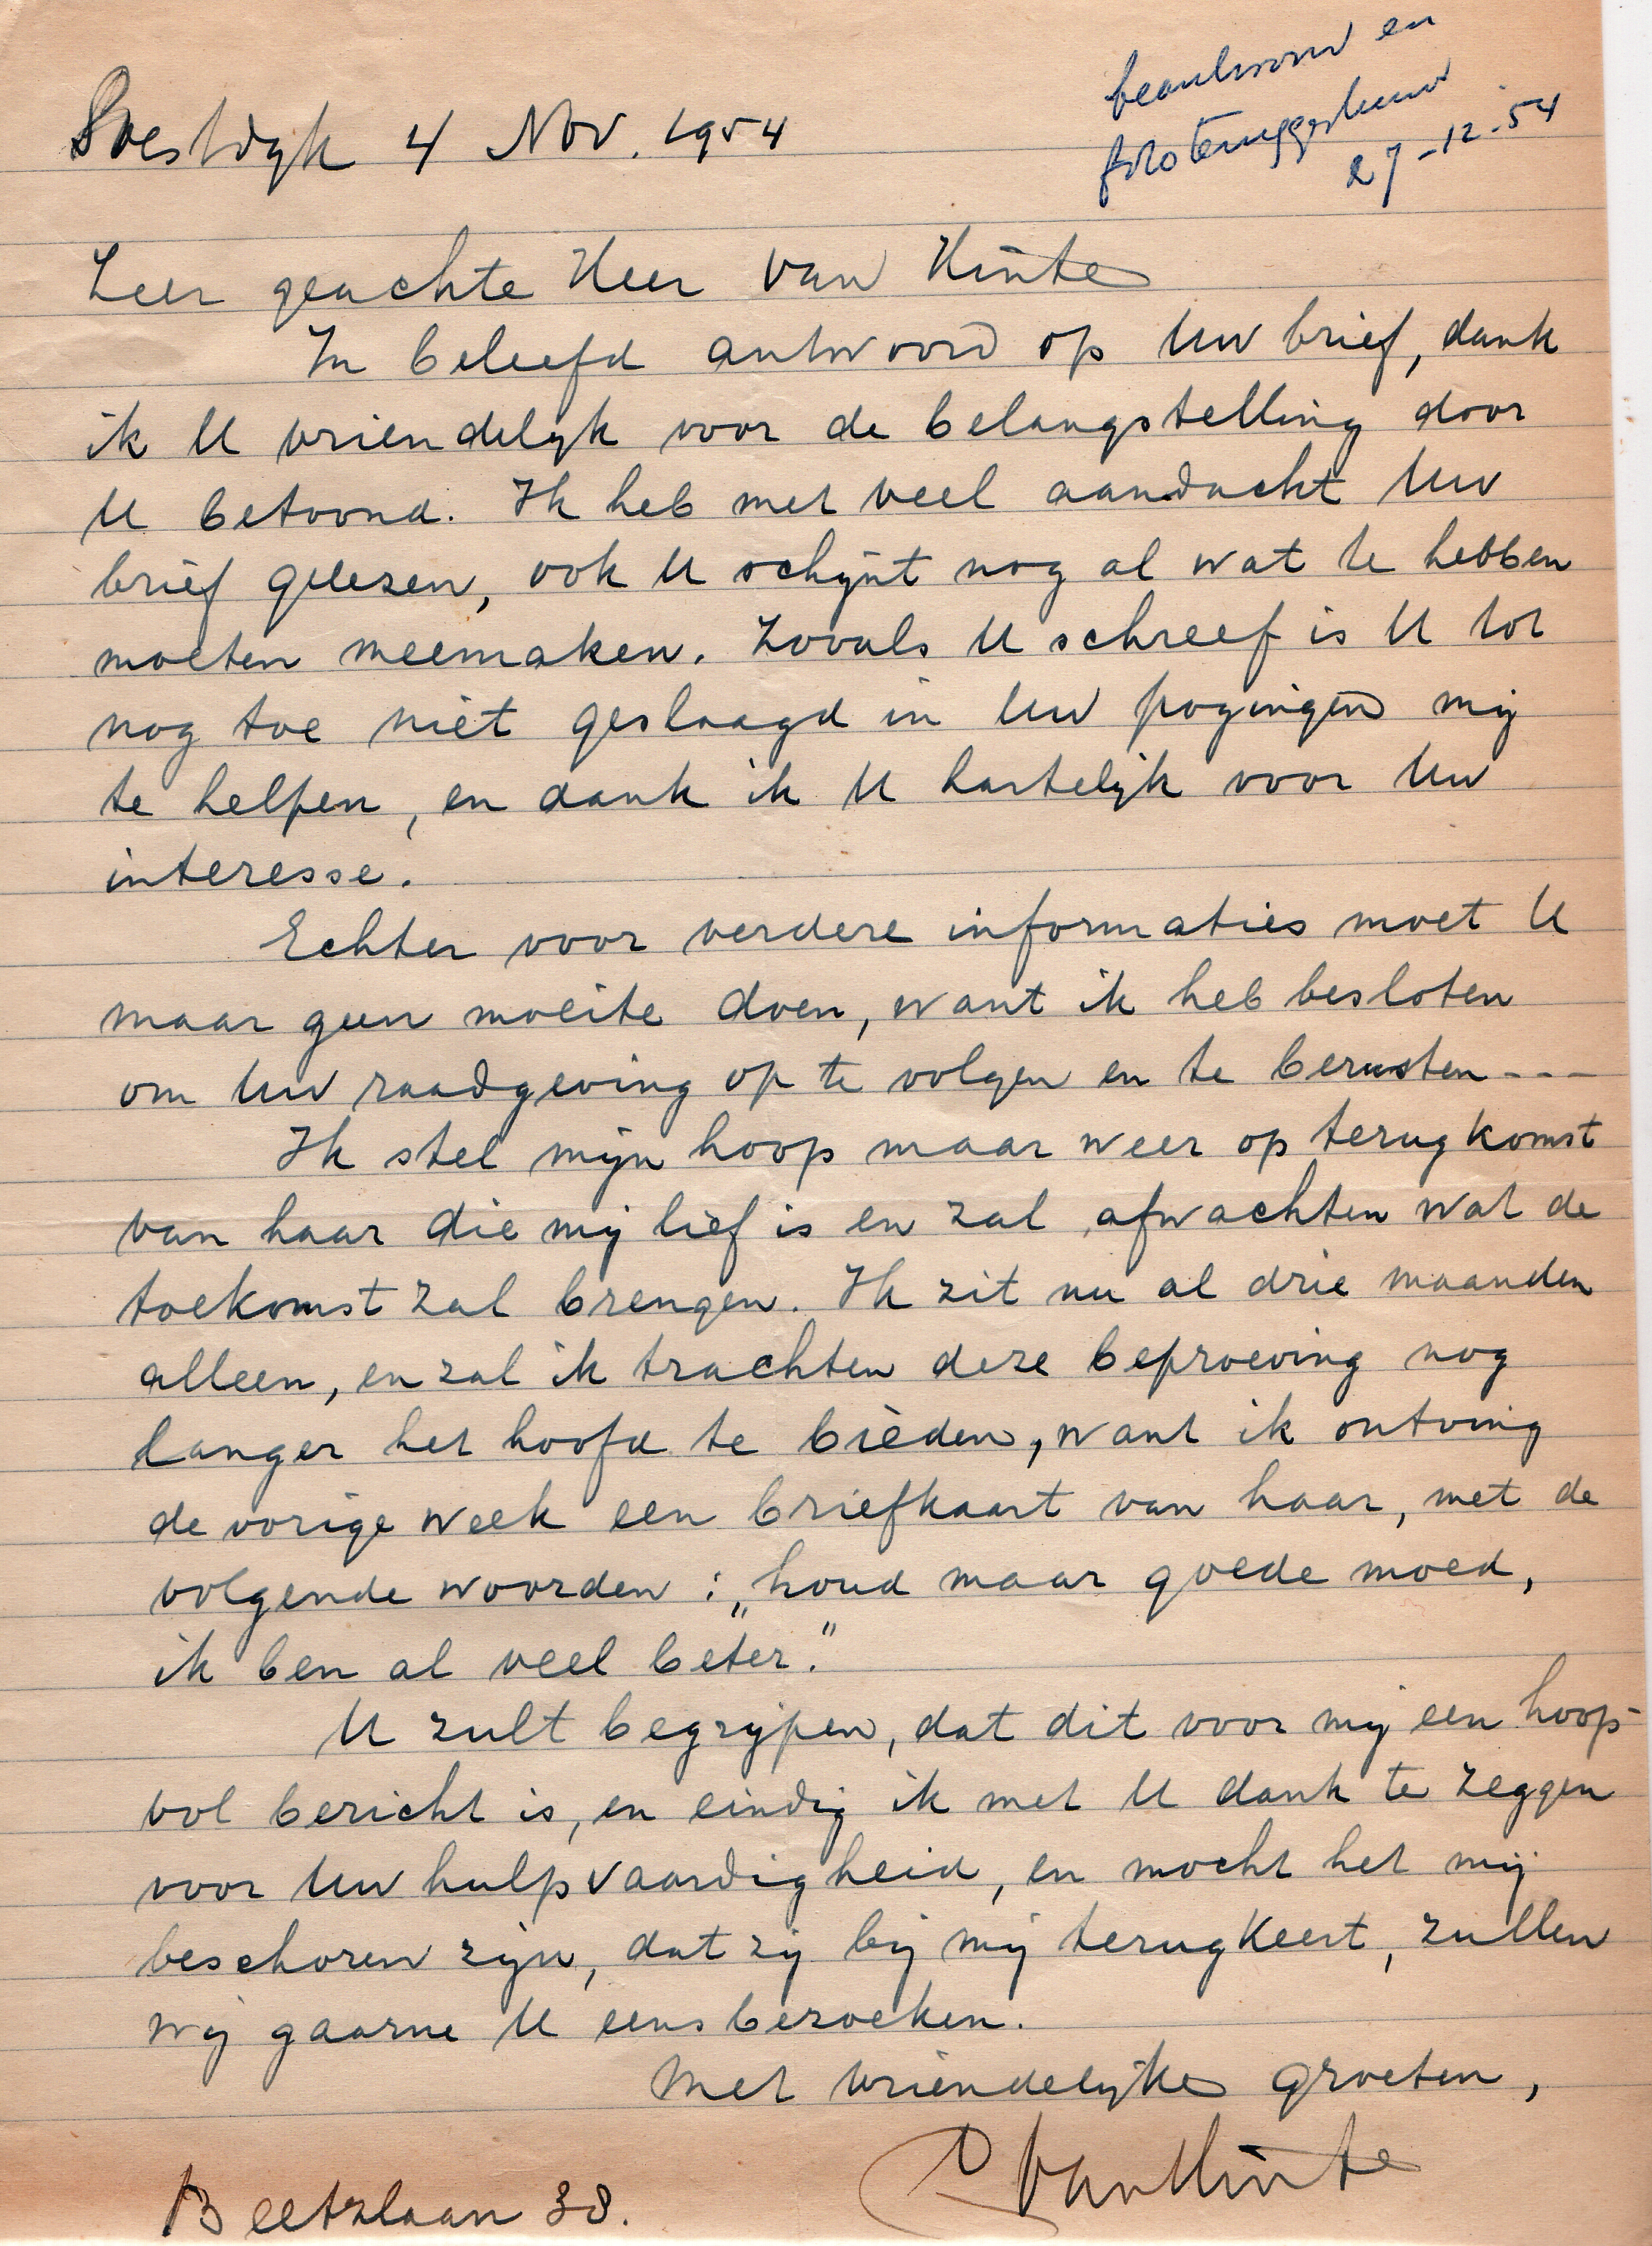 Soestdijk 4 Nov. 1954
beantwoord en
foto teruggestuurd
27-12-54
Zeer geachte Heer van Hinte
In beleefd antwoord op Uw brief, dank
ik U vriendelijk voor de belangstelling door
U betoond. Ik heb met veel aandacht Uw
brief gelezen, ook U schijnt nog al wat te hebben
moeten meemaken. Zooals U schreef is U tot
nog toe niet geslaagd in Uw pogingen mij
te helpen, en dank ik U hartelijk voor Uw
interesse.
Echter voor verdere informaties moet U
maar geen moeite doen, want ik heb besloten
om Uw raadgeving op te volgen en te berusten---
Ik stel mijn hoop maar weer op terugkomst
van haar die mij lief is en zal afwachten wat de
toekomst zal brengen. Ik zit nu al drie maanden
alleen, en zal ik trachten deze beproeving nog
langer het hoofd te bieden, want ik ontving
de vorige week een briefkaart van haar, met de
volgende woorden: „houd maar goede moed,
ik ben al veel beter."
U zult begrijpen, dat dit voor mij een hoop-
vol bericht is, en eindig ik met U dank te zeggen
voor Uw hulpvaardigheid, en mocht het mij
beschoren zijn, dat zij bij mij terugkeert, zullen
wij gaarne U eens bezoeken.
Met vriendelijke groeten,
VanHinte
Beetzlaan 38.